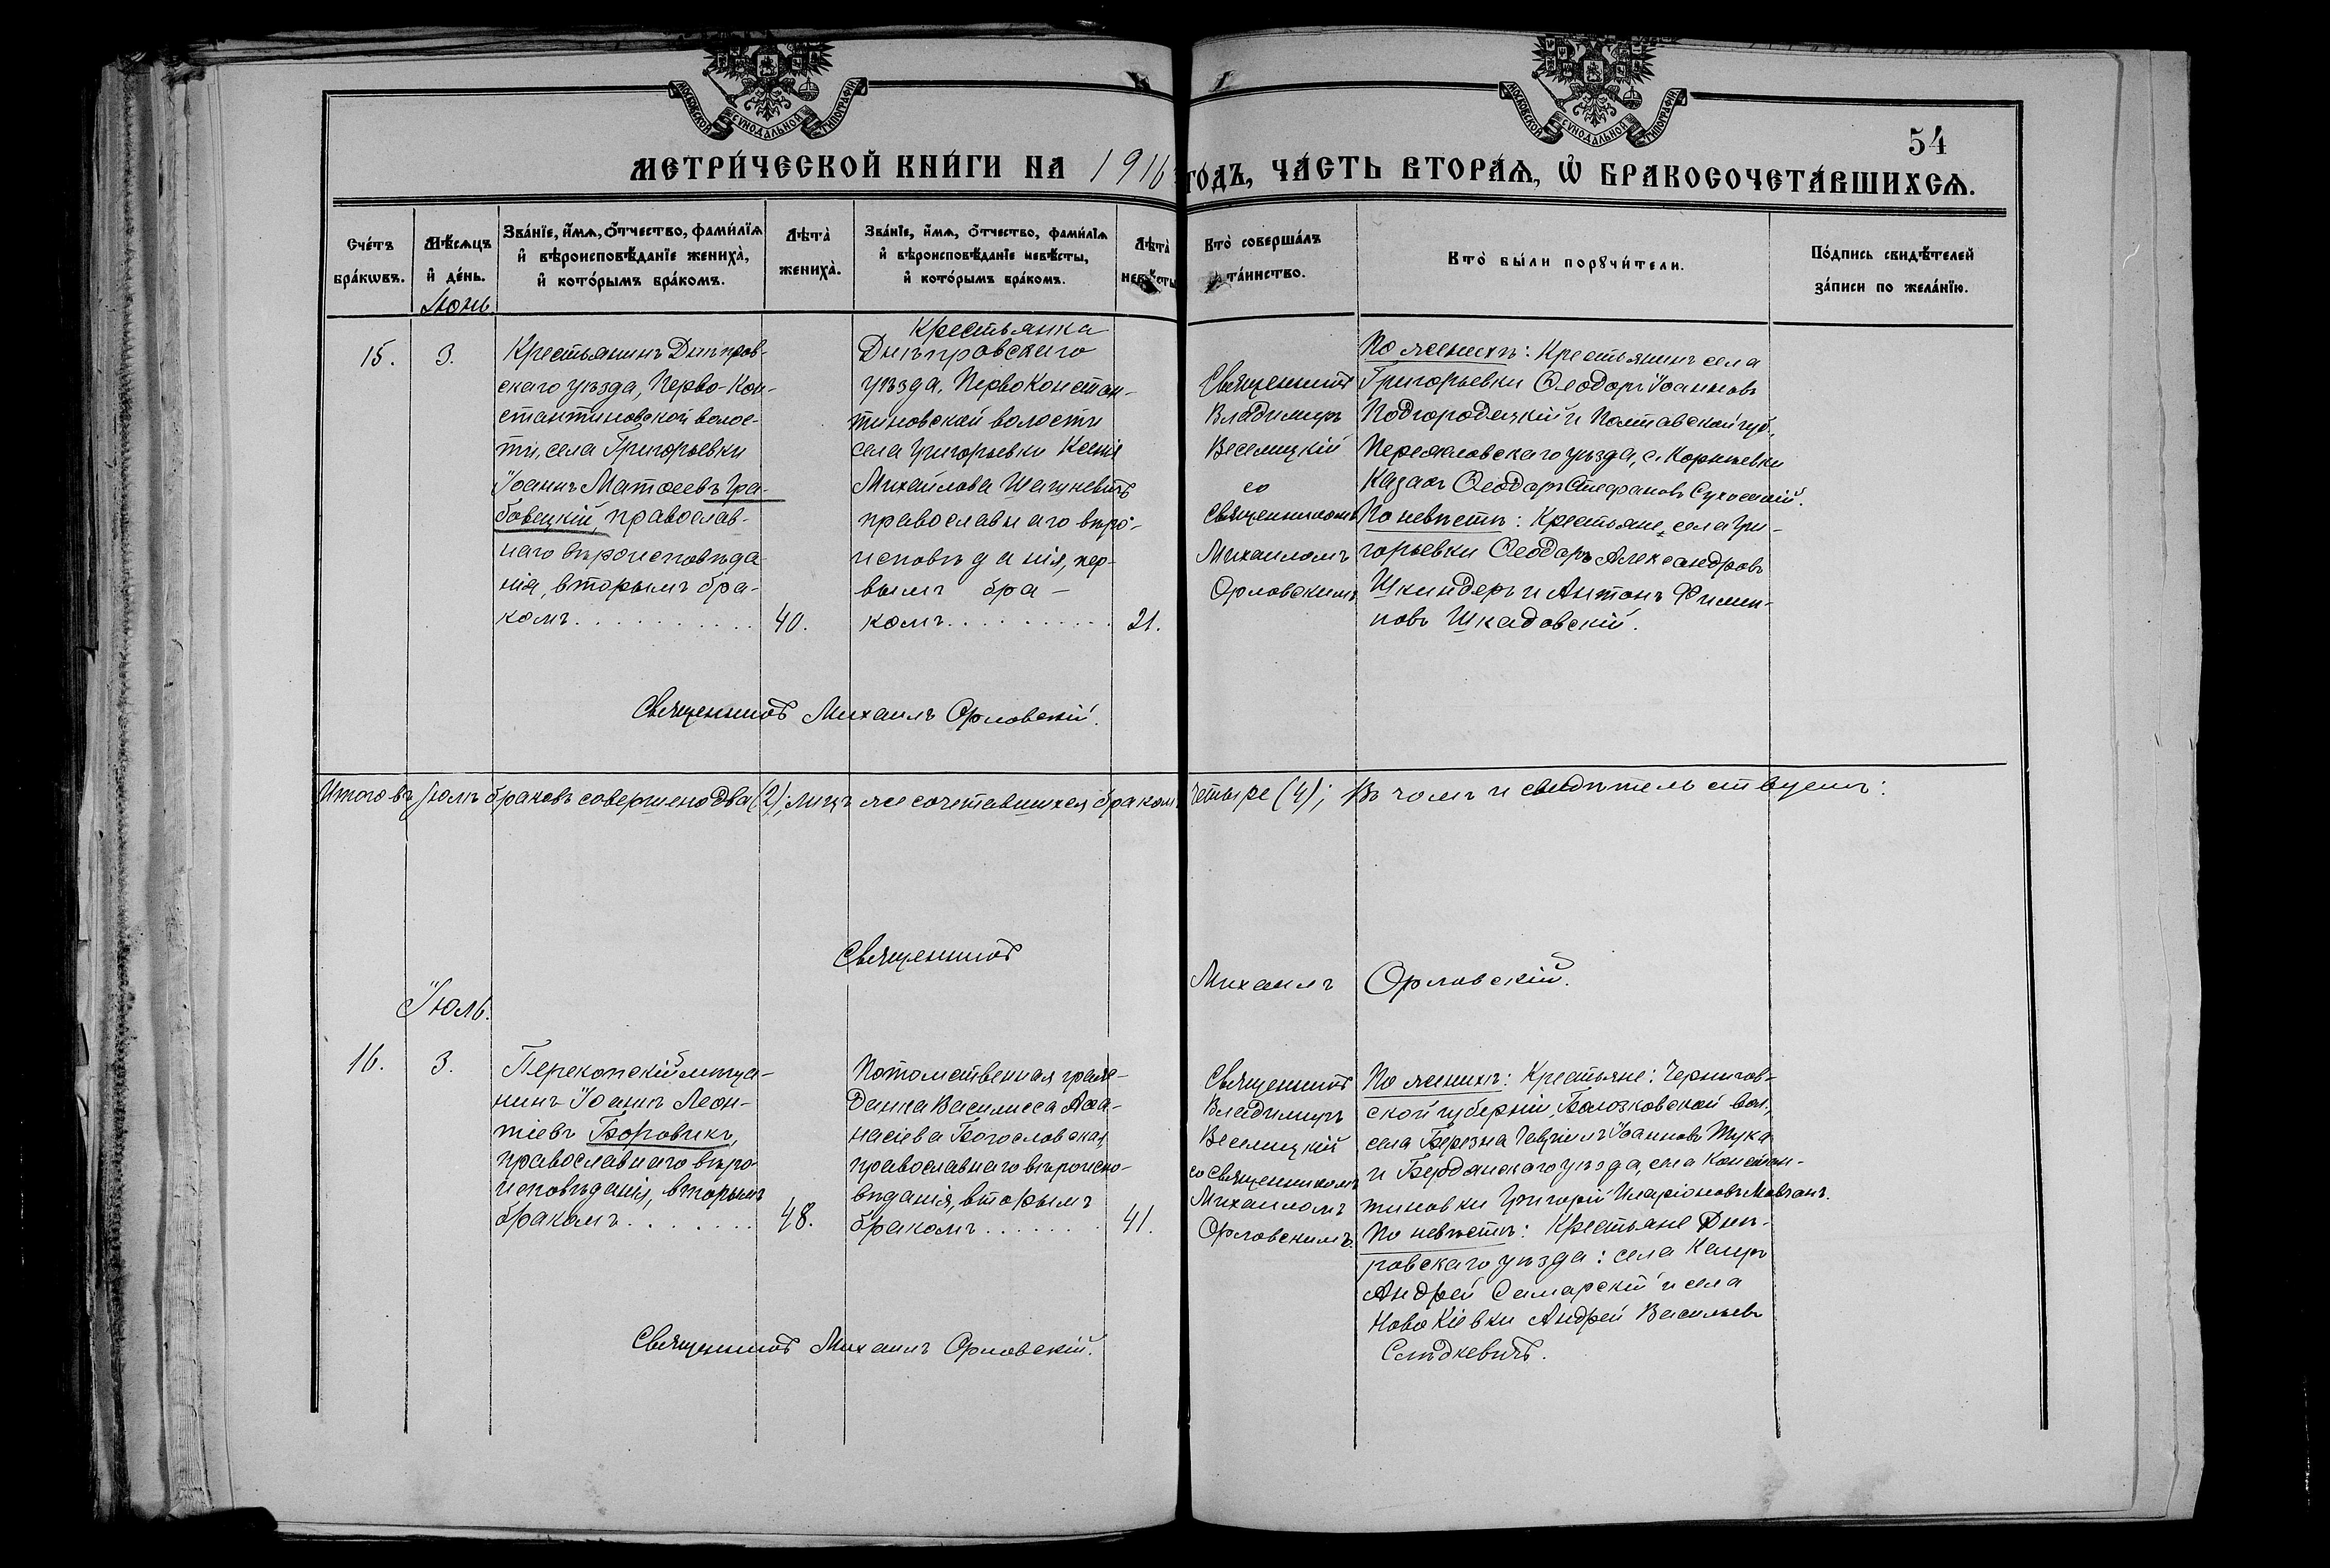 МОСКОВСКОЙ СѴНОДАЛЬНОЙ ТИПОГРАФІИ
МОСКОВСКОЙ СѴНОДАЛЬНОЙ ТИПОГРАФІИ
54
МЕТРИ́ЧЕСКОЙ КНИ́ГИ НА 1916 ГОДЪ, ЧА́СТЬ ВТОРА́Ѧ, Ѡ҆ БРАКОСОЧЕТА́ВШИХСѦ.
Сче́тъ бра́кωвъ.
Мѣ́сѧцъ и҆ де́нь.
Зва́нїе, и҆́мѧ, ѻ҆́тчество, фами́лїѧ
и҆ вѣроисповѣ́данїе жениха̀,
и҆ кото́рымъ бра́комъ.
Лѣта̀ жениха̀.
Зва́нїе, и҆́мѧ, ѻ҆́тчество, фами́лїѧ
и҆ вѣроисповѣ́данїе невѣ́сты,
и҆ кото́рымъ бра́комъ.
Лѣта̀ невѣ́сты
Кто̀ соверша́лъ
та́инство.
Кто̀ бы́ли порꙋчи́тели.
По́дпись свидѣ́телей
за́писи по жела́нїю.
Іюнь
15.
3.
Крестьянинъ Днѣпров-
скаго уѣзда, Перво-Кон-
стантиновской волос-
ти, села Григорьевки
Іоаннъ Матѳеевъ Гра-
бовецкій, православ-
наго вѣроисповѣда-
нія, вторымъ бра-
комъ . . . . . . . . . .
40.
Крестьянка
Днѣпровскаго
уѣзда, ПервоКонстан-
тиновской волости
села Григорьевки Ксенія
Михайлова
православнаго вѣро-
исповѣданія, пер-
вымъ бра-
комъ . . . . . . . . .
21.
Священникъ
Владимиръ
Веселицкій
со
священникомъ
Михаиломъ
Орловскимъ
По женихѣ: Крестьянинъ села
Григорьевки Ѳеодоръ Іоанновъ
Подгородецкій и Полтавской губ.,
Переяславскаго уѣзда, с.
Казакъ Ѳеодоръ Стефановъ
По невѣстѣ: Крестьяне, села Гри-
горьевки Ѳеодоръ Александровъ
Шкиндеръ и Антонъ Филип-
повъ Шкадовскій.
Священникъ Михаилъ Орловскій.
Итого въ Іюнѣ браковъ совершено два (2); лицъ же сочетавшихся бракомъ четыре (4); Въ чемъ и свидѣтельствуемъ:
Священникъ Михаилъ Орловскій.
Іюль.
16.
3.
Перекопскій мѣща-
нинъ Іоаннъ Леон-
тіевъ Боровикъ,
православнаго вѣро-
исповѣданія, вторымъ
бракомъ . . . . . . .
48.
Потомственная граж-
данка Василисса Аѳа-
насіева Богословская,
православнаго вѣроиспо-
вѣданія, вторымъ
бракомъ . . . . . . .
41.
Священникъ
Владимиръ
Веселицкій
со священникомъ
Михаиломъ
Орловскимъ.
По женихѣ: Крестьяне: Чернигов-
ской губерніи, вол.,
села Березна Гавріилъ Іоанновъ
и Бердянскаго уѣзда, села Констан-
тиновки Григорій Иларіоновъ Мовчанъ.
По невѣстѣ: Крестьяне Днѣп-
ровскаго уѣзда: села
Андрей Самарскій и села
Ново Кіевки Андрей Васильевъ